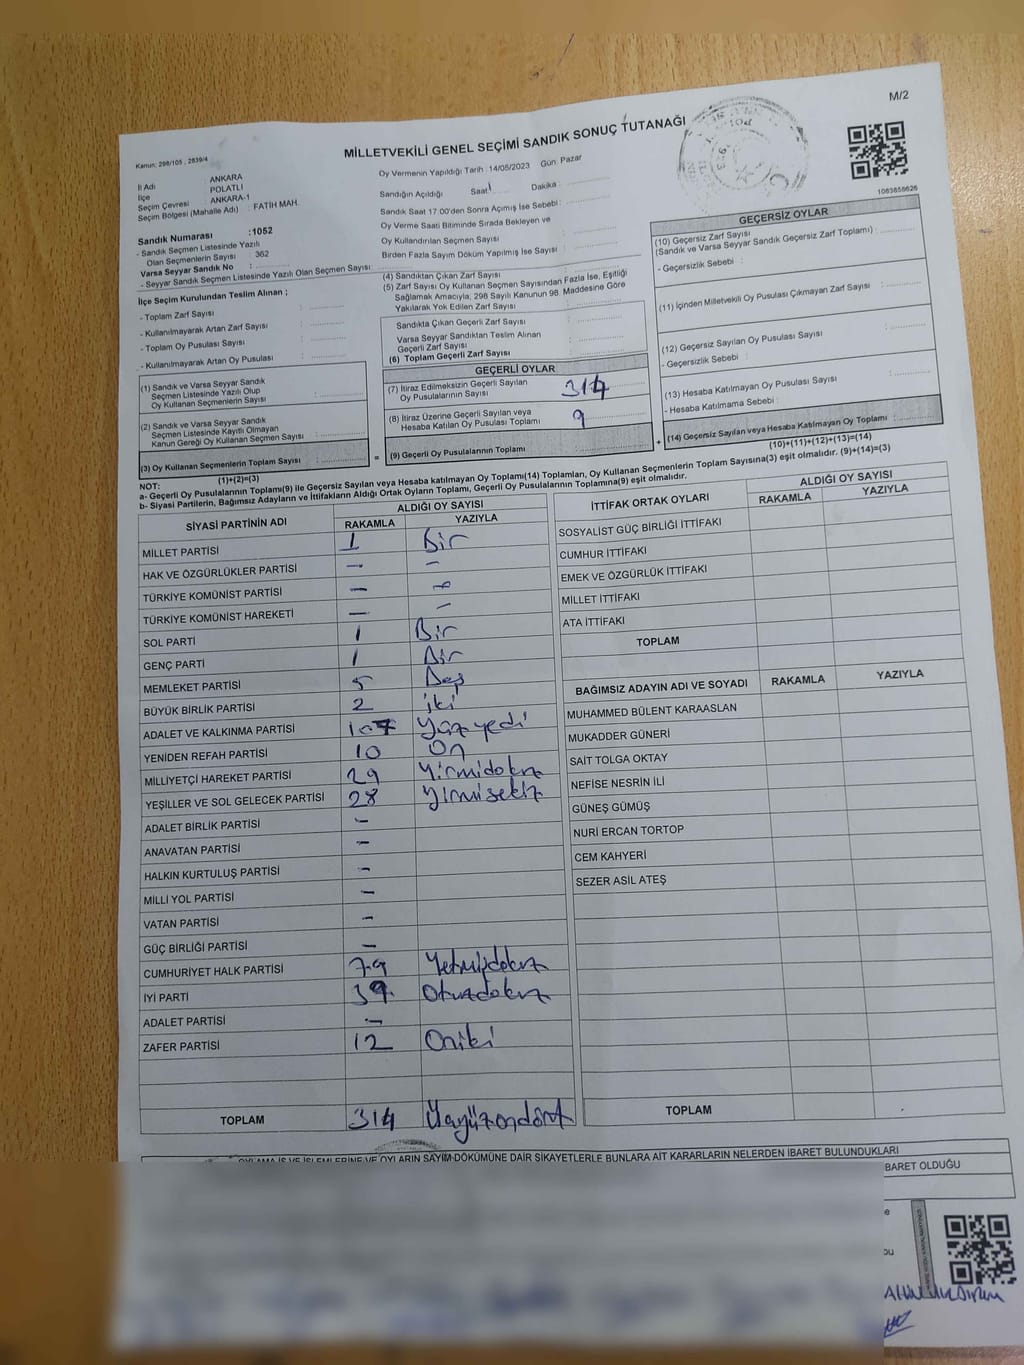 M/2
MİLLETVEKİLİ GENEL SEÇİMİ SANDIK SONUÇ TUTANAĞI
Kanun: 298/105 , 2839/4
İl Adı : ANKARA
İlçe : POLATLI
Seçim Çevresi : ANKARA-1
Seçim Bölgesi (Mahalle Adı) : FATİH MAH.
Sandık Numarası :1052
- Sandık Seçmen Listesinde Yazılı
Olan Seçmenlerin Sayısı : 362
Varsa Seyyar Sandık No :
- Seyyar Sandık Seçmen Listesinde Yazılı Olan Seçmen Sayısı:
Oy Vermenin Yapıldığı Tarih : 14/05/2023 Gün: Pazar
Sandığın Açıldığı Saat Dakika :
Sandık Saat 17.00'den Sonra Açımış İse Sebebi:
Oy Verme Saati Bitiminde Sırada Bekleyen ve
Oy Kullandırılan Seçmen Sayısı :
Birden Fazla Sayım Döküm Yapılmış İse Sayısı :
1083858626
İlçe Seçim Kurulundan Teslim Alınan ;
- Toplam Zarf Sayısı :
- Kullanılmayarak Artan Zarf Sayısı :
- Toplam Oy Pusulası Sayısı :
- Kullanılmayarak Artan Oy Pusulası :
(1) Sandık ve Varsa Seyyar Sandık
Seçmen Listesinde Yazılı Olup
Oy Kullanan Seçmenlerin Sayısı :
(2) Sandık ve Varsa Seyyar Sandık
Seçmen Listesinde Kayıtlı Olmayan
Kanun Gereği Oy Kullanan Seçmen Sayısı :
(3) Oy Kullanan Seçmenlerin Toplam Sayısı :
(1)+(2)=(3)
(4) Sandıktan Çıkan Zarf Sayısı :
(5) Zarf Sayısı Oy Kullanan Seçmen Sayısından Fazla İse, Eşitliği
Sağlamak Amacıyla, 298 Sayılı Kanunun 98. Maddesine Göre
Yakılarak Yok Edilen Zarf Sayısı :
Sandıkta Çıkan Geçerli Zarf Sayısı :
Varsa Seyyar Sandıktan Teslim Alınan
Geçerli Zarf Sayısı :
(6) Toplam Geçerli Zarf Sayısı :
GEÇERLİ OYLAR
(7) İtiraz Edilmeksizin Geçerli Sayılan
Oy Pusulalarının Sayısı : 314
(8) İtiraz Üzerine Geçerli Sayılan veya
Hesaba Katılan Oy Pusulası Toplamı : 9
= (9) Geçerli Oy Pusulalarının Toplamı :
GEÇERSİZ OYLAR
(10) Geçersiz Zarf Sayısı
(Sandık ve Varsa Seyyar Sandık Geçersiz Zarf Toplamı) :
- Geçersizlik Sebebi :
(11) İçinden Milletvekili Oy Pusulası Çıkmayan Zarf Sayısı :
(12) Geçersiz Sayılan Oy Pusulası Sayısı :
- Geçersizlik Sebebi :
(13) Hesaba Katılmayan Oy Pusulası Sayısı :
- Hesaba Katılmama Sebebi :
+ (14) Geçersiz Sayılan veya Hesaba Katılmayan Oy Toplamı :
(10)+(11)+(12)+(13)=(14)
NOT:
a- Geçerli Oy Pusulalarının Toplamı(9) ile Geçersiz Sayılan veya Hesaba katılmayan Oy Toplamı(14) Toplamları, Oy Kullanan Seçmenlerin Toplam Sayısına(3) eşit olmalıdır. (9)+(14)=(3)
b- Siyasi Partilerin, Bağımsız Adayların ve İttifakların Aldığı Ortak Oyların Toplamı, Geçerli Oy Pusulalarının Toplamına(9) eşit olmalıdır.
SİYASİ PARTİNİN ADI ALDIĞI OY SAYISI
RAKAMLA YAZIYLA
MİLLET PARTİSİ 1 Bir
HAK VE ÖZGÜRLÜKLER PARTİSİ - -
TÜRKİYE KOMÜNİST PARTİSİ - -
TÜRKİYE KOMÜNİST HAREKETİ - -
SOL PARTİ 1 Bir
GENÇ PARTİ 1 Bir
MEMLEKET PARTİSİ 5 Beş
BÜYÜK BİRLİK PARTİSİ 2 iki
ADALET VE KALKINMA PARTİSİ 107 Yüzyedi
YENİDEN REFAH PARTİSİ 10 On
MİLLİYETÇİ HAREKET PARTİSİ 29 Yirmidokuz
YEŞİLLER VE SOL GELECEK PARTİSİ 28 Yirmisekiz
ADALET BİRLİK PARTİSİ -
ANAVATAN PARTİSİ -
HALKIN KURTULUŞ PARTİSİ -
MİLLİ YOL PARTİSİ -
VATAN PARTİSİ -
GÜÇ BİRLİĞİ PARTİSİ -
CUMHURİYET HALK PARTİSİ 79 Yetmişdokuz
İYİ PARTİ 39 Otuzdokuz
ADALET PARTİSİ -
ZAFER PARTİSİ 12 Oniki
TOPLAM 314 Üçyüzondört
İTTİFAK ORTAK OYLARI ALDIĞI OY SAYISI
RAKAMLA YAZIYLA
SOSYALİST GÜÇ BİRLİĞİ İTTİFAKI
CUMHUR İTTİFAKI
EMEK VE ÖZGÜRLÜK İTTİFAKI
MİLLET İTTİFAKI
ATA İTTİFAKI
TOPLAM
BAĞIMSIZ ADAYIN ADI VE SOYADI RAKAMLA YAZIYLA
MUHAMMED BÜLENT KARAASLAN
MUKADDER GÜNERİ
SAİT TOLGA OKTAY
NEFİSE NESRİN İLİ
GÜNEŞ GÜMÜŞ
NURİ ERCAN TORTOP
CEM KAHYERİ
SEZER ASİL ATEŞ
TOPLAM
OYLAMA İŞ VE İŞLEMLERİNE VE OYLARIN SAYIM-DÖKÜMÜNE DAİR ŞİKAYETLERLE BUNLARA AİT KARARLARIN NELERDEN İBARET BULUNDUKLARI
BARET OLDUĞU